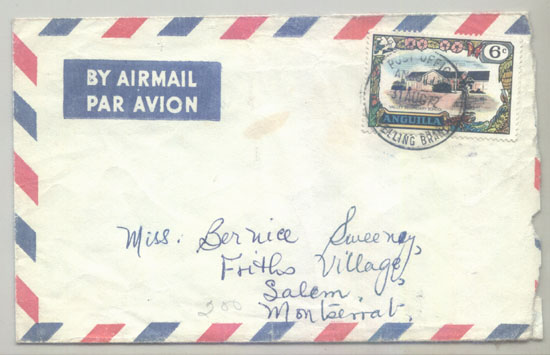 BY AIRMAIL
PAR AVION
6c
POST OFFICE
31 AUG 72
ANGUILLA
Miss. Bernice Sweeney,
Friths Village,
Salem,
Montserrat.
200